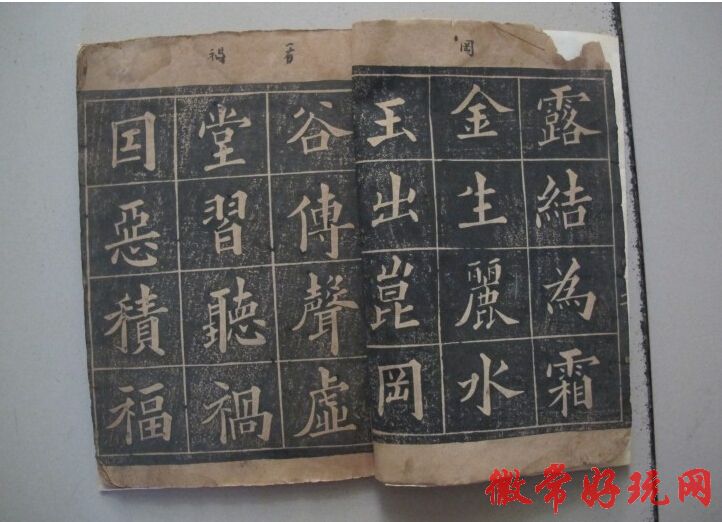 岡
露結為霜
金生麗水
玉出崑岡
禍
谷傳聲虛
堂習聽禍
囙惡積福
徽常好玩网